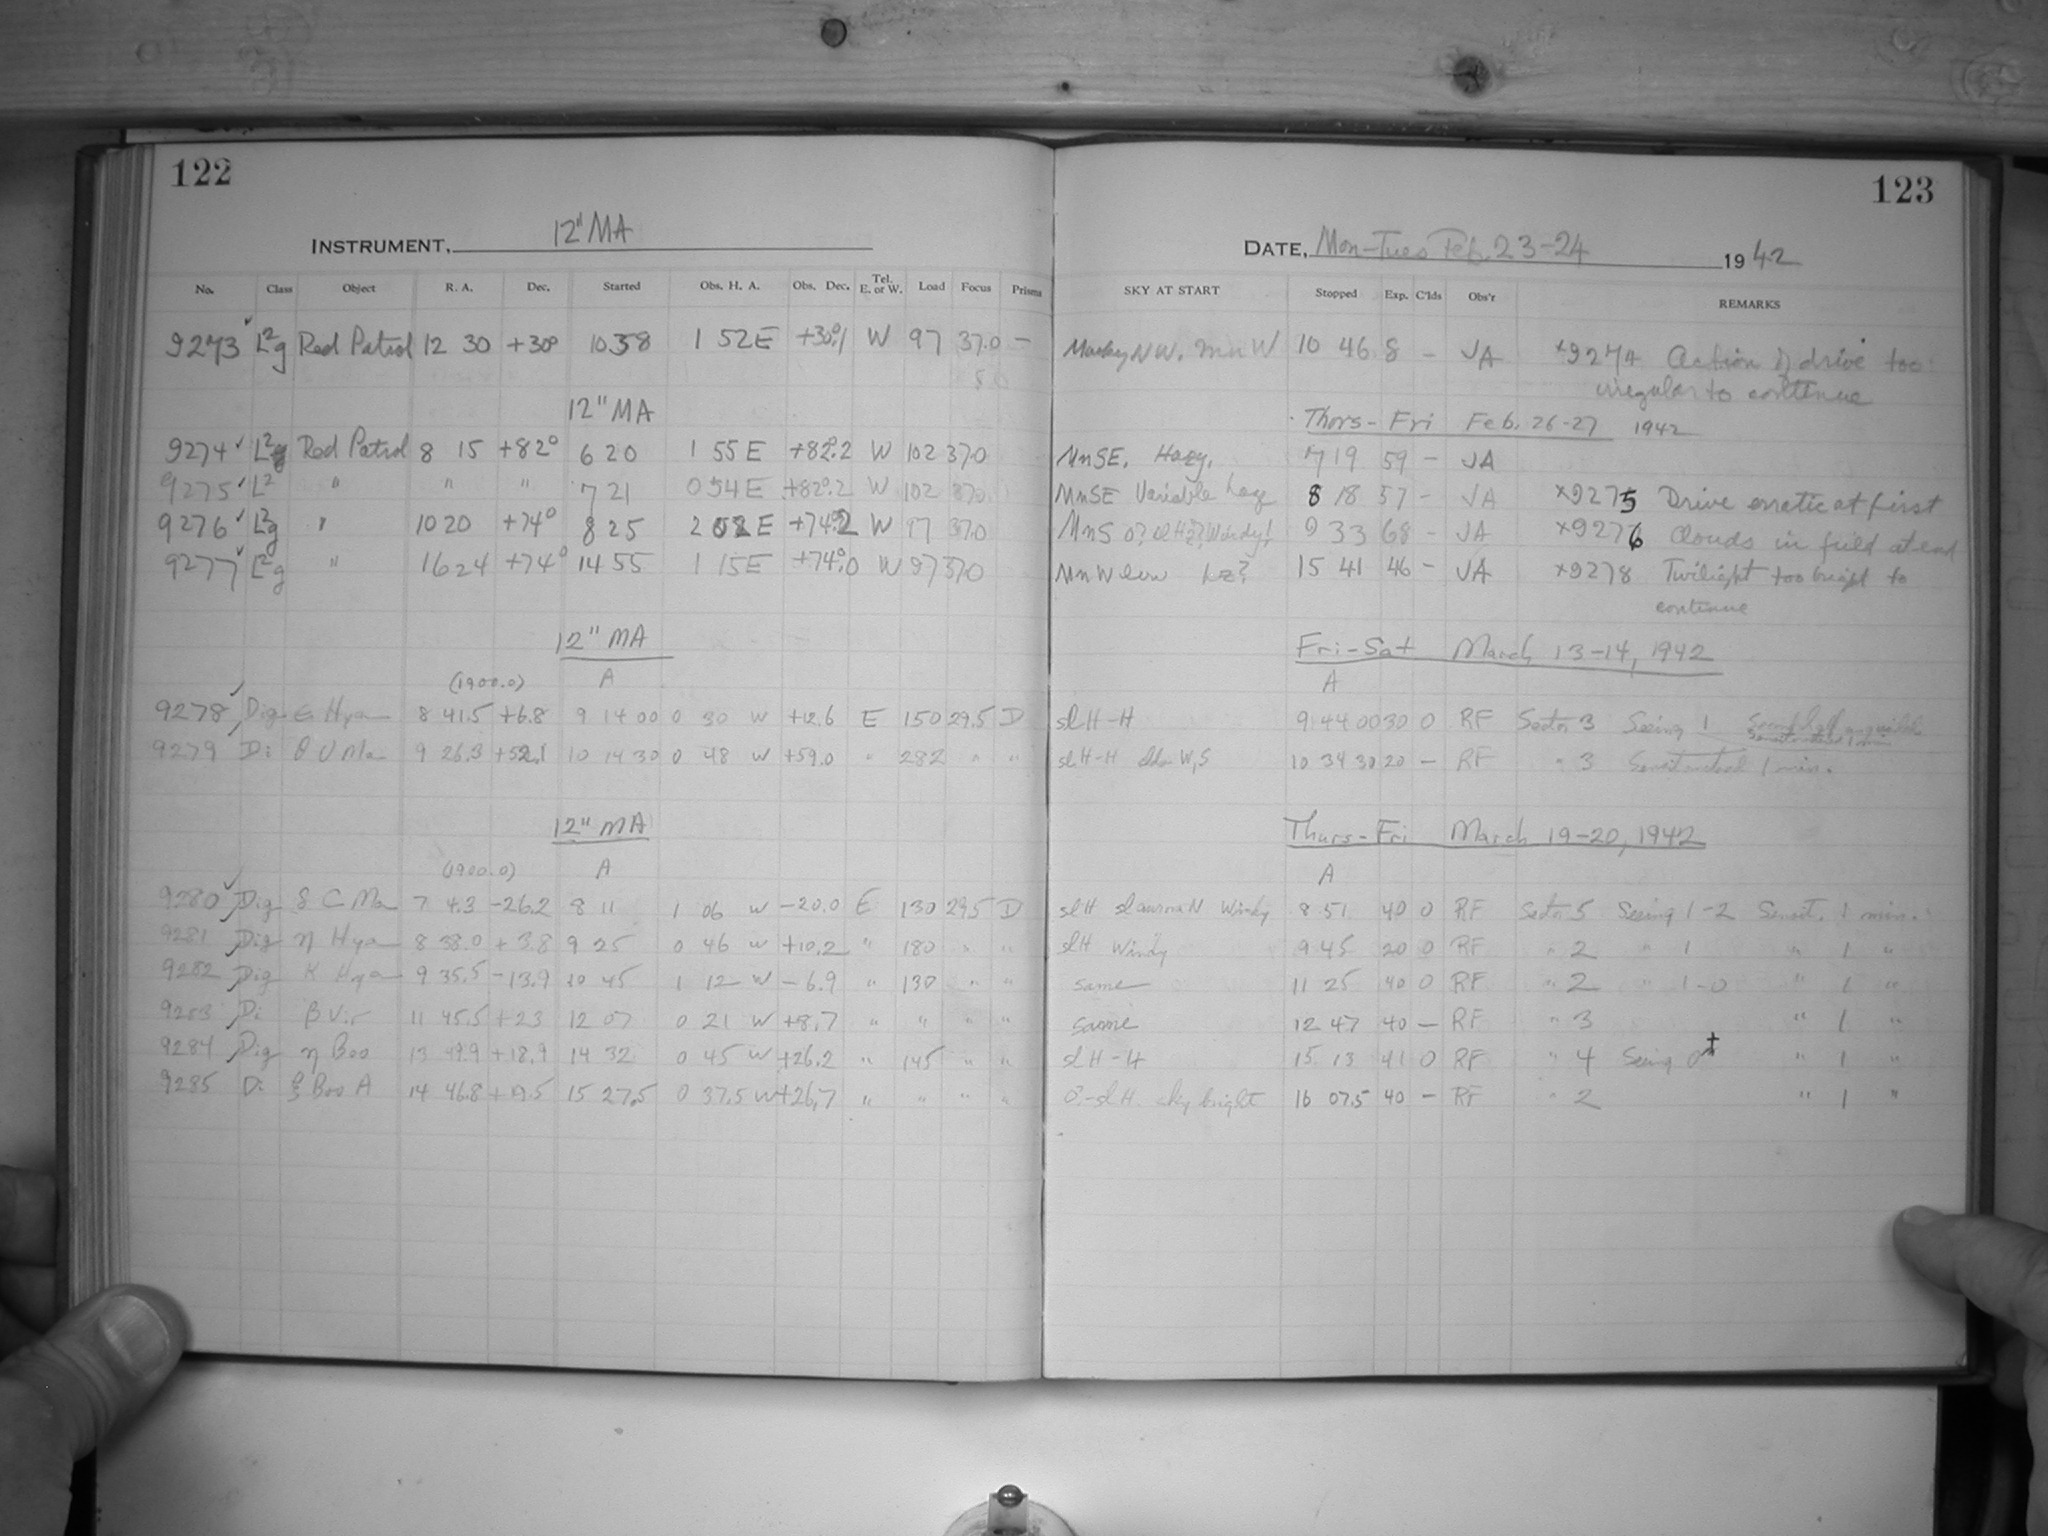 122
INSTRUMENT, 12" MA
No. Class Object R. A. Dec. Started Obs. H. A. Obs. Dec. Tel. E. or W. Load Focus Prisms
9273 L²g Red Patrol 12 30 +30° 10 38 1 52 E +30°.1 W 97 37.0 —
12" MA
9274 L²g Red Patrol 8 15 +82° 6 20 1 55 E +82°.2 W 102 37.0
9275 L² " " " 7 21 0 54 E +82°.2 W 102 37.0
9276 L²g " 10 20 +74° 8 25 2 02 E +74°.2 W 97 37.0
9277 L²g " 16 24 +74° 14 55 1 15 E +74°.0 W 97 37.0
12" MA
(1900.0) A
9278 Dig ε Hya 8 41.5 +6.8 9 14 00 0 30 W +12.6 E 150 29.5 D
9279 Di θ U Ma 9 26.3 +52.1 10 14 30 0 48 W +59.0 " 282 " "
12" MA
(1900.0) A
9280 Dig δ C Ma 7 4.3 -26.2 8 11 1 06 W -20.0 E 130 29.5 D
9281 Dig η Hya 8 38.0 +3.8 9 25 0 46 W +10.2 " 180 " "
9282 Dig K Hya 9 35.5 -13.9 10 45 1 12 W -6.9 " 130 " "
9283 Di β Vir 11 45.5 +2.3 12 07 0 21 W +8.7 " " " "
9284 Dig η Boo 13 49.9 +18.9 14 32 0 45 W +26.2 " 145 " "
9285 Di ξ Boo A 14 46.8 +19.5 15 27.5 0 37.5 W +26.7 " " " "
123
DATE, Mon-Tues Feb. 23-24 1942
SKY AT START Stopped Exp. C'lds Obs'r REMARKS
NW. Mn W 10 46 8 - JA ×9274 Action of drive too
irregular to continue
Thurs-Fri Feb. 26-27 1942
Mn SE. Hazy. 7 19 59 - JA
Mn SE Variable haze 8 18 57 - JA ×9275 Drive erratic at first
Mn S Windy! 9 33 68 - JA ×9276 Clouds in field at end
Mn W low Hz? 15 41 46 - JA ×9278 Twilight too bright to
continue
Fri-Sat March 13-14, 1942
A
sl H-H 9 44 00 30 0 RF Sector 3 Seeing 1
sl H-H W, S 10 34 30 20 - RF " 3 1 min.
Thurs-Fri March 19-20, 1942
A
sl H sl aurora N Windy 8 51 40 0 RF Sector 5 Seeing 1-2 Sensit. 1 min.
sl H Windy 9 45 20 0 RF " 2 " 1 " 1 "
same 11 25 40 0 RF " 2 " 1-0 " 1 "
same 12 47 40 - RF " 3 " 1 "
sl H-H 15 13 41 0 RF " 4 Seeing 0+ " 1 "
0?-sl H. sky bright 16 07.5 40 - RF " 2 " 1 "